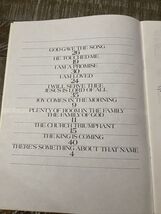 GOD GAVE THE SONG
26
HE TOUCHED ME
19
I AM A PROMISE
30
I AM LOVED
24
I WILL SERVE THEE
JESUS IS LORD OF ALL
35
JOY COMES IN THE MORNING
9
PLENTY OF ROOM IN THE FAMILY
THE FAMILY OF GOD
11
THE CHURCH TRIUMPHANT
15
THE KING IS COMING
40
THERE'S SOMETHING ABOUT THAT NAME
4